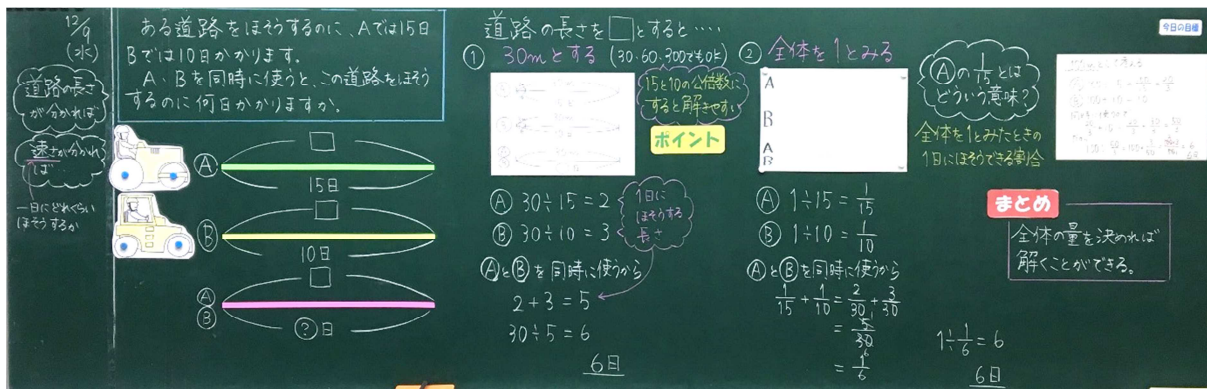 12/9
(水)
道路の長さ
が分かれば
速さが分かれ
ば…
一日にどれぐらい
ほそうするか
ある道路をほそうするのに、Aでは15日
Bでは10日かかります。
A、Bを同時に使うと、この道路をほそう
するのに何日かかりますか。
□
Ⓐ
15日
□
Ⓑ
10日
□
Ⓐ
Ⓑ
?日
道路の長さを□とすると‥‥
① 30mとする (30、60、300でもOK)
15と10の公倍数に
すると解きやすい
ポイント
Ⓐ 30÷15=2
Ⓑ 30÷10=3
1日に
ほそうする
長さ
ⒶとⒷを同時に使うから
2+3=5
30÷5=6
6日
② 全体を1とみる
A
B
A
B
Ⓐ 1÷15=1/15
Ⓑ 1÷10=1/10
ⒶとⒷを同時に使うから
1/15+1/10=2/30+3/30
=5/30
=1/6
1÷1/6=6
6日
Ⓐの1/15とは
どういう意味?
全体を1とみたときの
1日にほそうできる割合
今日の目標
まとめ
全体の量を決めれば
解くことができる。